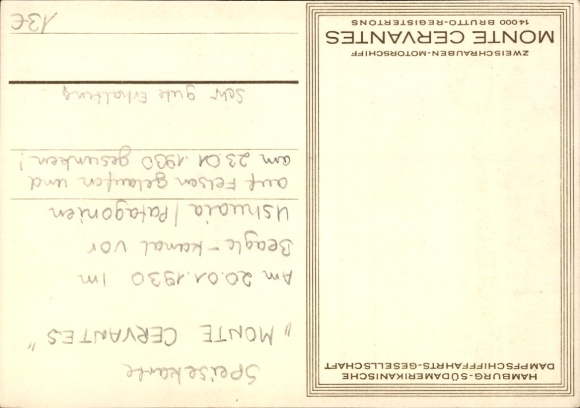 HAMBURG-SÜDAMERIKANISCHE
DAMPFSCHIFFFAHRTS-GESELLSCHAFT
ZWEISCHRAUBEN-MOTORSCHIFF
MONTE CERVANTES
14000 BRUTTO-REGISTERTONS
Speisekarte
"MONTE CERVANTES"
Am 20.01.1930 im
Beagle-kanal vor
Ushuaia / Patagonien
auf Felsen gelaufen und
am 23.01.1930 gesunken!
Sehr gute Erhaltung
13€